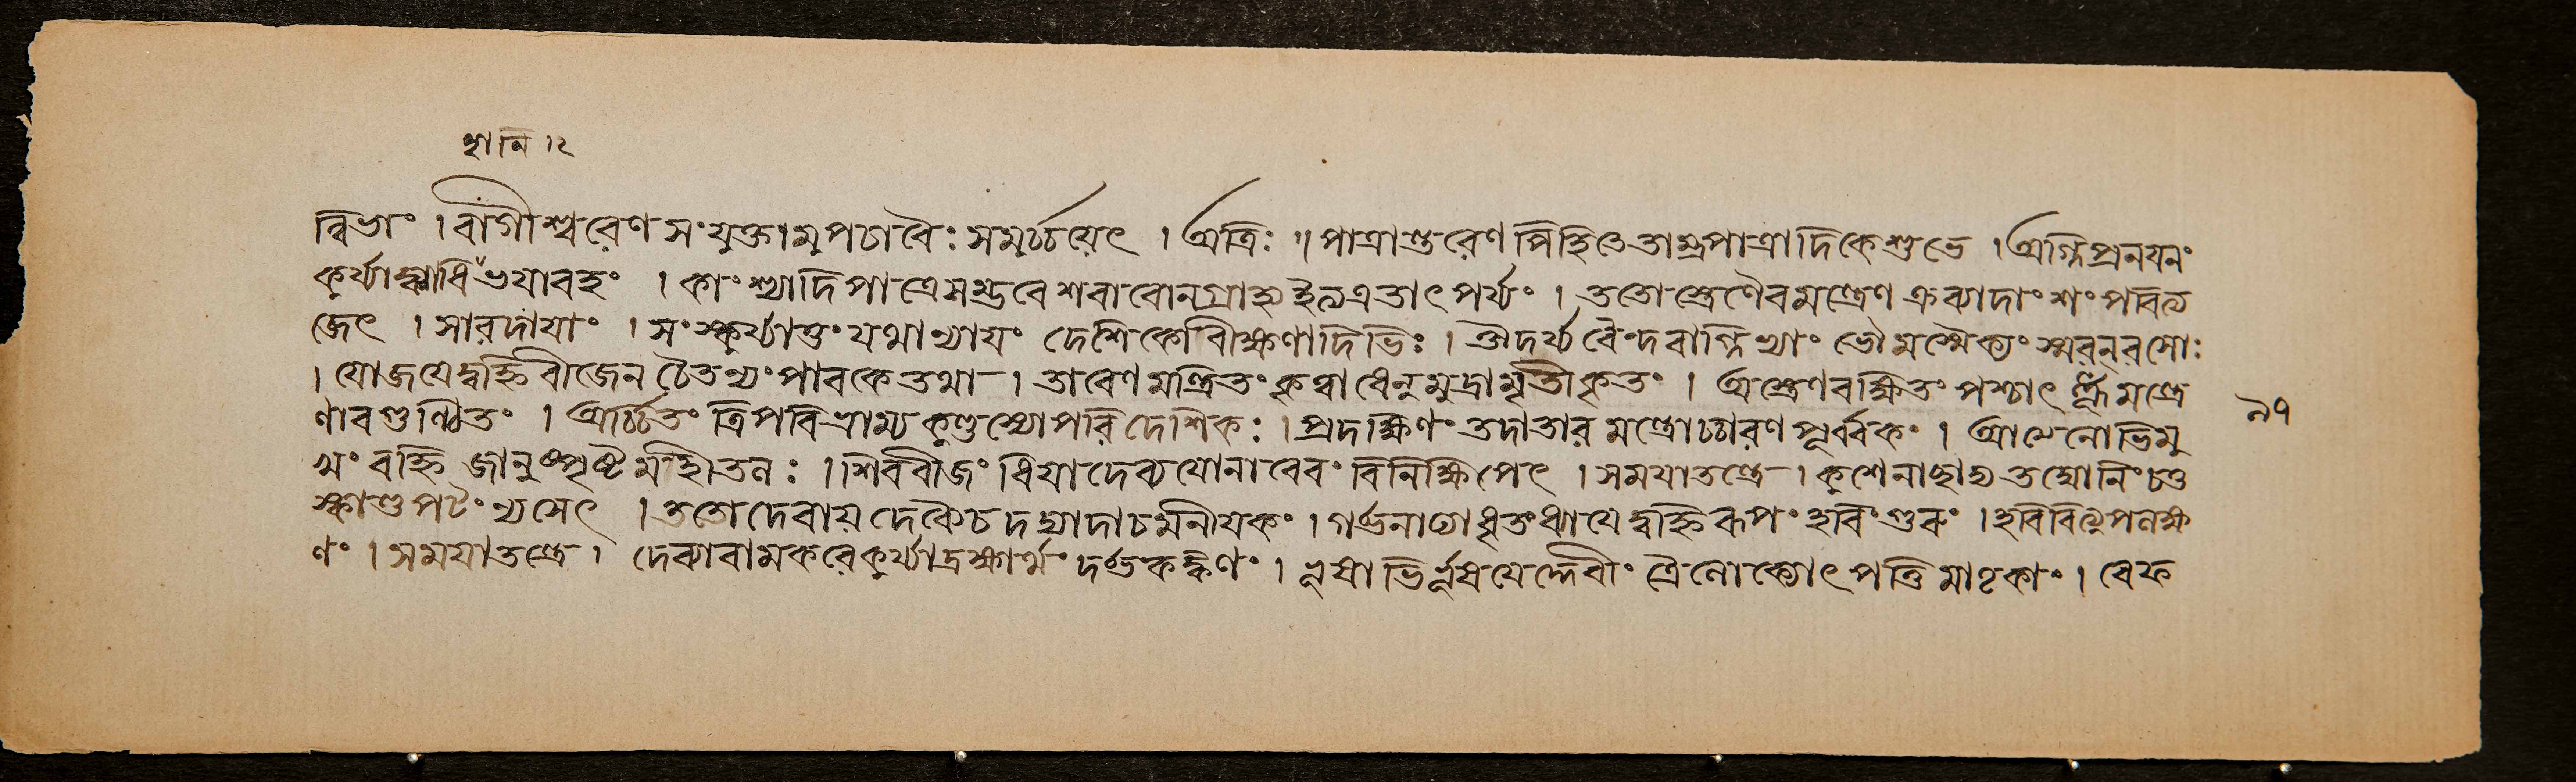 স্থানি ৷২
ন্নিভাং । বাগীশ্বরেণ সংযুক্তামুপচারৈঃ সমর্চ্চয়েৎ । অত্রিঃ ॥ পাত্রান্তরেণ পিহিতে তাম্রপাত্রাদিকে শুভে । অগ্নিপ্রনয়নং
কুর্য্যাচ্ছ্রাবে ভয়াবহং । কাংস্যাদিপাত্রে শরাবোন গ্রাহ্য ইত্য তাৎপর্য্যং । ততো স্ত্রেণৈব মন্ত্রেণ ক্রব্যাদাংশং পরিত্য
জেৎ । সারদায়াং । সংস্কুর্য্যাত্তং যথান্যায়ং দেশিকো বীক্ষণাদিভিঃ । ঔদর্য্যবৈন্দবাগ্নিভ্যাং ভৌমস্যৈক্যং স্মরন্ বসোঃ
। যোজয়েদ্বহ্নিবীজেন চৈতন্যং পাবকে তথা । তারেণ মন্ত্রিতং কৃত্বা ধেনুমুদ্রামৃতীকৃতং । অস্ত্রেণ রক্ষিতং পশ্চাৎ মন্ত্রে
ণাবগুণ্ঠিতং । অর্চ্চিতং ত্রিপরিভ্রাম্য কুণ্ডস্যোপরি দেশিকঃ । প্রদক্ষিণং তদা তারমন্ত্রোচ্চারণপূর্ব্বকং । আত্মনোভিমু ৯৭
খং বহ্নিং জানুস্পৃষ্টমহীতলঃ । শিববীজং ধিয়া দেব্য যোনাবেবং বিনিক্ষিপেৎ । সময়াতন্ত্রে । কুশেনাচ্ছাদ্য তদ্যোনিং
পটং ন্যসেৎ । ততো দেবায় দেব্যৈ চ দদ্যাদাচমনীয়কং । গর্ভনাড্যা ধৃতং ধ্যায়েদ্বহ্নিরূপং হবিং গুরুং ।
ণং । সময়াতন্ত্রে । দেব্যা বামকরে কুর্য্যাদ্রক্ষার্থং দর্ভকঙ্কণং । দেবীং ত্রৈলোক্যোৎপত্তিমাতৃকাং । রেফ